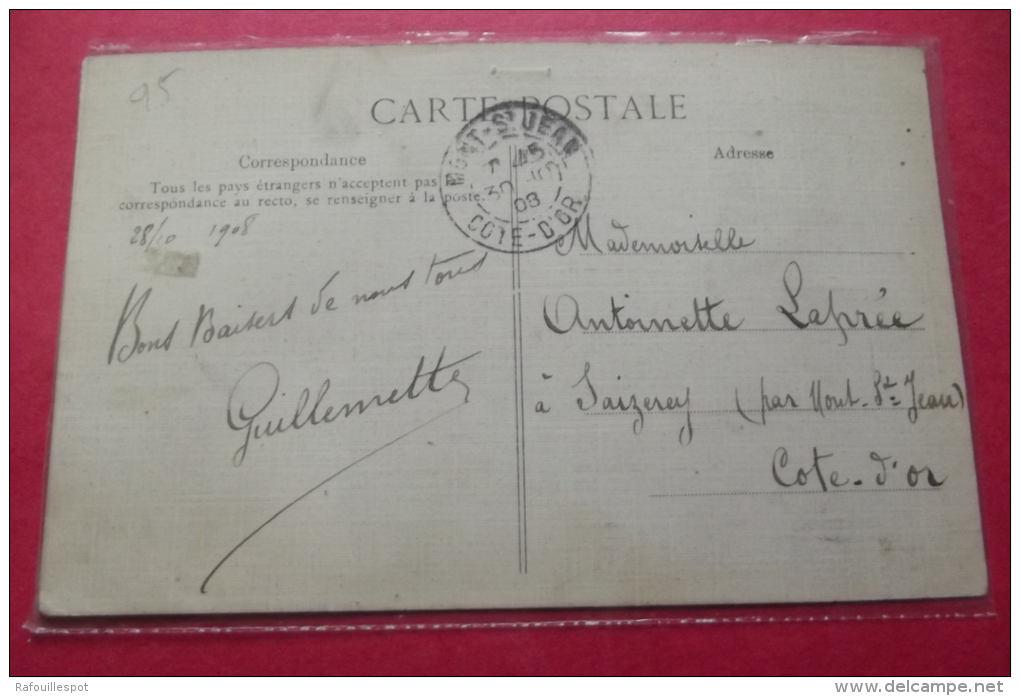 95
CARTE POSTALE
Correspondance
Tous les pays étrangers n'acceptent pas
correspondance au recto, se renseigner à la poste.
28/10 1908
Bons Baisers de nous tous
Guillemette
MONT-ST JEAN
30
08
COTE-D'OR
Adresse
Mademoiselle
Antoinette Laprée
à Saizerey (par Mont-St=Jean)
Cote-d'or
Rafouillespot
www.delcampe.net